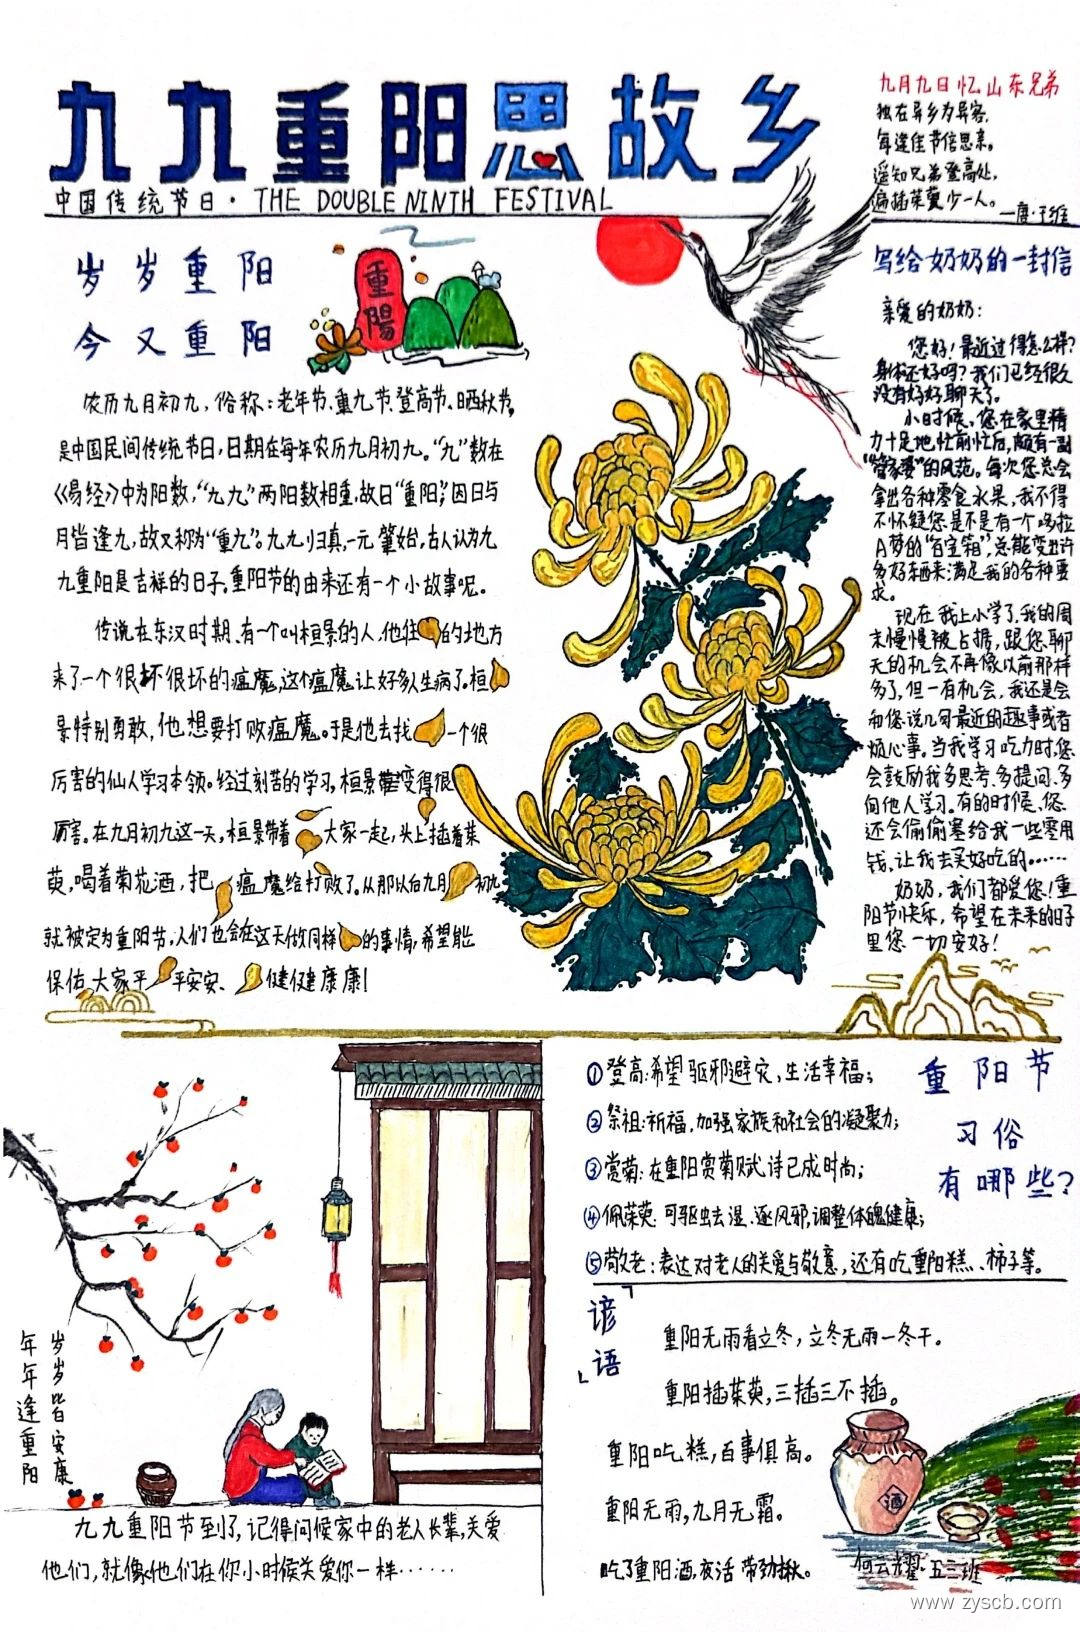 九九重阳思故乡
中国传统节日·THE DOUBLE NINTH FESTIVAL
九月九日忆山东兄弟
独在异乡为异客,
每逢佳节倍思亲。
遥知兄弟登高处,
遍插茱萸少一人。
—唐·王维
岁岁重阳
今又重阳
重陽
农历九月初九,俗称:老年节、重九节、登高节、日西秋节。
是中国民间传统节日,日期在每年农历九月初九。“九”数在
《易经》中为阳数,“九九”两阳数相重,故曰“重阳”;因日与
月皆逢九,故又称为“重九”。九九归真,一元肇始,古人认为九
九重阳是吉祥的日子。重阳节的由来还有一个小故事呢。
传说在东汉时期、有一个叫桓景的人,他住的地方
来了一个很坏很坏的瘟魔,这个瘟魔让好多人生病了。桓
景特别勇敢,他想要打败瘟魔。于是他去找一个很
厉害的仙人学习本领。经过刻苦的学习,桓景变得很
厉害。在九月初九这一天,桓景带着大家一起,头上插着茱
萸,喝着菊花酒,把瘟魔给打败了。从那以后九月初九
就被定为重阳节,人们也会在这天做同样的事情,希望能
保佑大家平平安安、健健康康!
写给奶奶的一封信
亲爱的奶奶:
您好!最近过得怎么样?
身体还好吗?我们已经很久
没有好好聊天了。
小时候、您在家里精
力十足地,忙前忙后,颇有一副
“管家婆”的风范。每次您总会
拿出各种零食水果,我不得
不怀疑您是不是有一个哆啦
A梦的“百宝箱”,总能变出许
多好东西来满足我的各种要
求。
现在我上小学了,我的周
末慢慢被占据,跟您聊
天的机会不再像以前那样
多了,但一有机会,我还是会
和您说几句最近的趣事或者
烦心事。当我学习吃力时,您
会鼓励我多思考、多提问、多
向他人学习。有的时候、您
还会偷偷塞给我一些零用
钱,让我去买好吃的······
奶奶,我们都爱您!重
阳节快乐,希望在未来的日子
里您一切安好!
重阳节
习俗
有哪些?
①登高:希望驱邪避灾,生活幸福;
②祭祖:祈福,加强家族和社会的凝聚力;
③赏菊:在重阳赏菊赋诗已成时尚;
④佩茱萸:可驱虫去湿、逐风邪,调整体魄健康;
⑤敬老:表达对老人的关爱与敬意,还有吃重阳糕、柿子等。
岁岁皆安康
年年逢重阳
九九重阳节到了,记得问候家中的老人长辈,关爱
他们,就像他们在你小时候关爱你一样······
「谚语」
重阳无雨看立冬,立冬无雨一冬干。
重阳插茱萸,三插三不插。
重阳吃糕,百事俱高。
重阳无雨,九月无霜。
吃了重阳酒,夜活带劲揪。
酒
何云耀·五三班
www zyscb.com